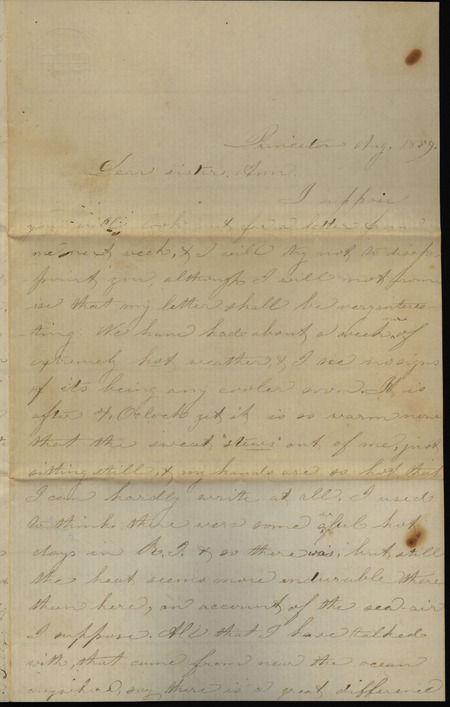 Princeton Aug. 1859.
Dear sister Ann.
I suppose
you will look out for a letter from
me next week, & I will try not to disap-
point you, although I will not prom-
ise that my letter shall be very interes-
ting. We have had about a week of
extremely hot weather, & I see no signs
of its being any cooler soon. It is
after 4, O'clock yet it is so warm now
that the sweat "stews" out of me, just
sitting still, & my hands are so hot that
I can hardly write at all. I used
to think there were some awful hot
days in R.I. & so there was, but still
the heat seems more indurable there
than here, on account of the sea-air
I suppose. All that I have talked
with, that came from near the ocean
anywhere, say there is a great difference